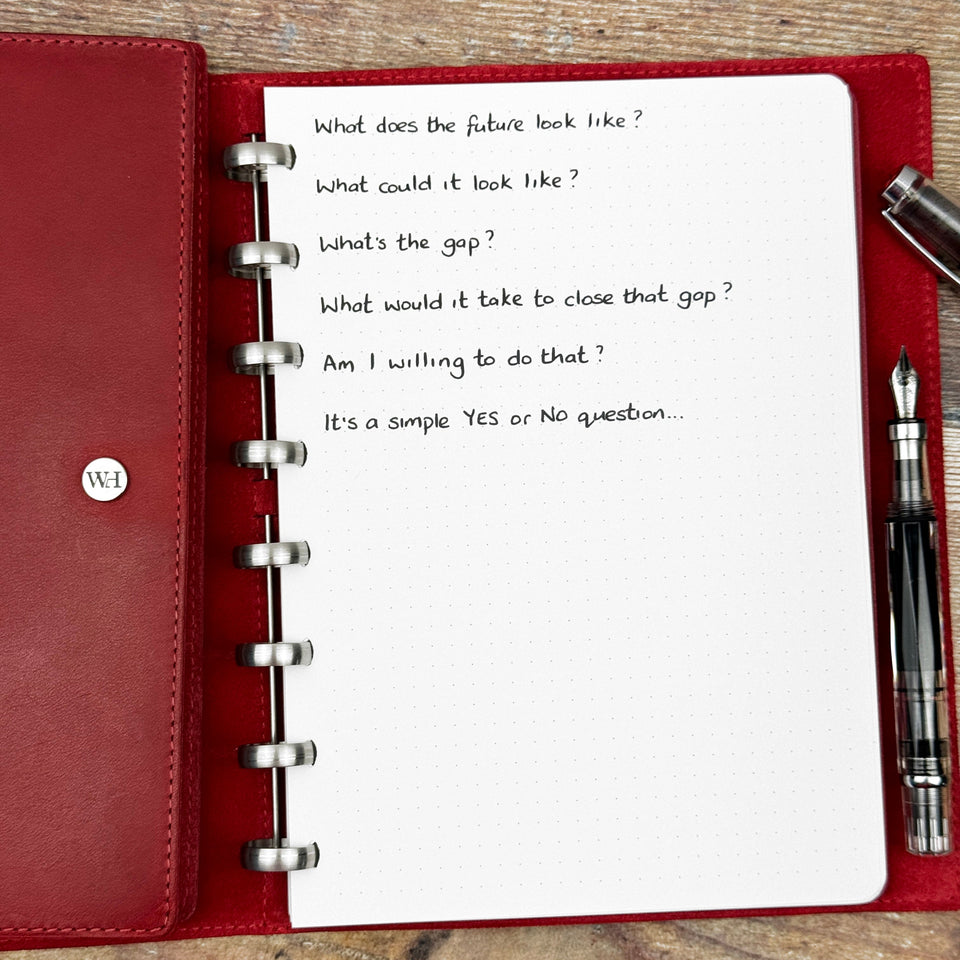 What does the future look like?
What could it look like?
What's the gap?
What would it take to close that gap?
Am I willing to do that?
It's a simple YES or No question...
WH